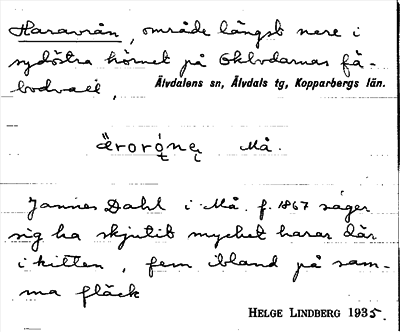 Haravrån, område längst nere i
sydöstra hörnet på Oklvdarnas fä-
bodvall,
Älvdalens sn, Älvdals tg, Kopparbergs län.
Må.
Jannes Dahl i Må. f. 1867 säger
sig ha skjutit mycket harar där
i kitten, fem ibland på sam-
ma fläck
HELGE LINDBERG 1935.